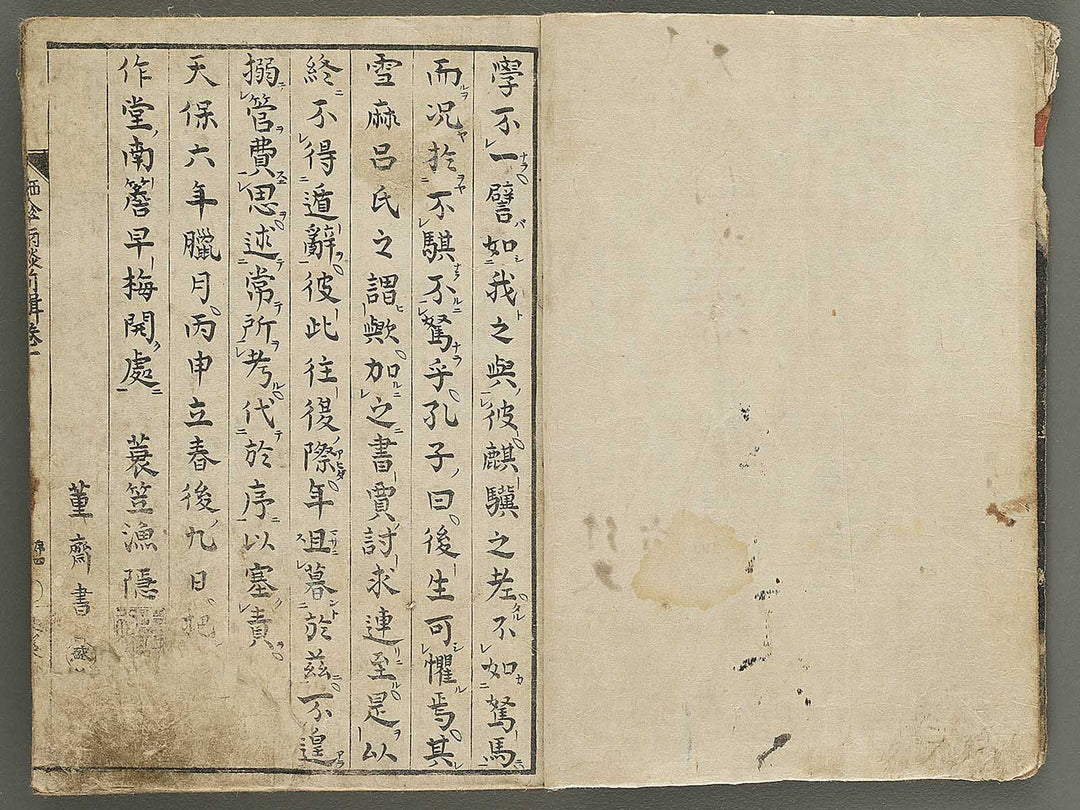 學不一譬如我之與彼麒驥之老不如駑馬
而況於不騏不駑乎孔子曰後生可懼焉其
雪麻呂氏之謂歟加之書賈討求連至是以
終不得遁辭彼此往復際年且暮於茲不遑
搦管費思述常所考代於序以塞責
天保六年臘月丙申立春後九日
作堂南簷早梅開處 蓑笠漁隱
董齋書